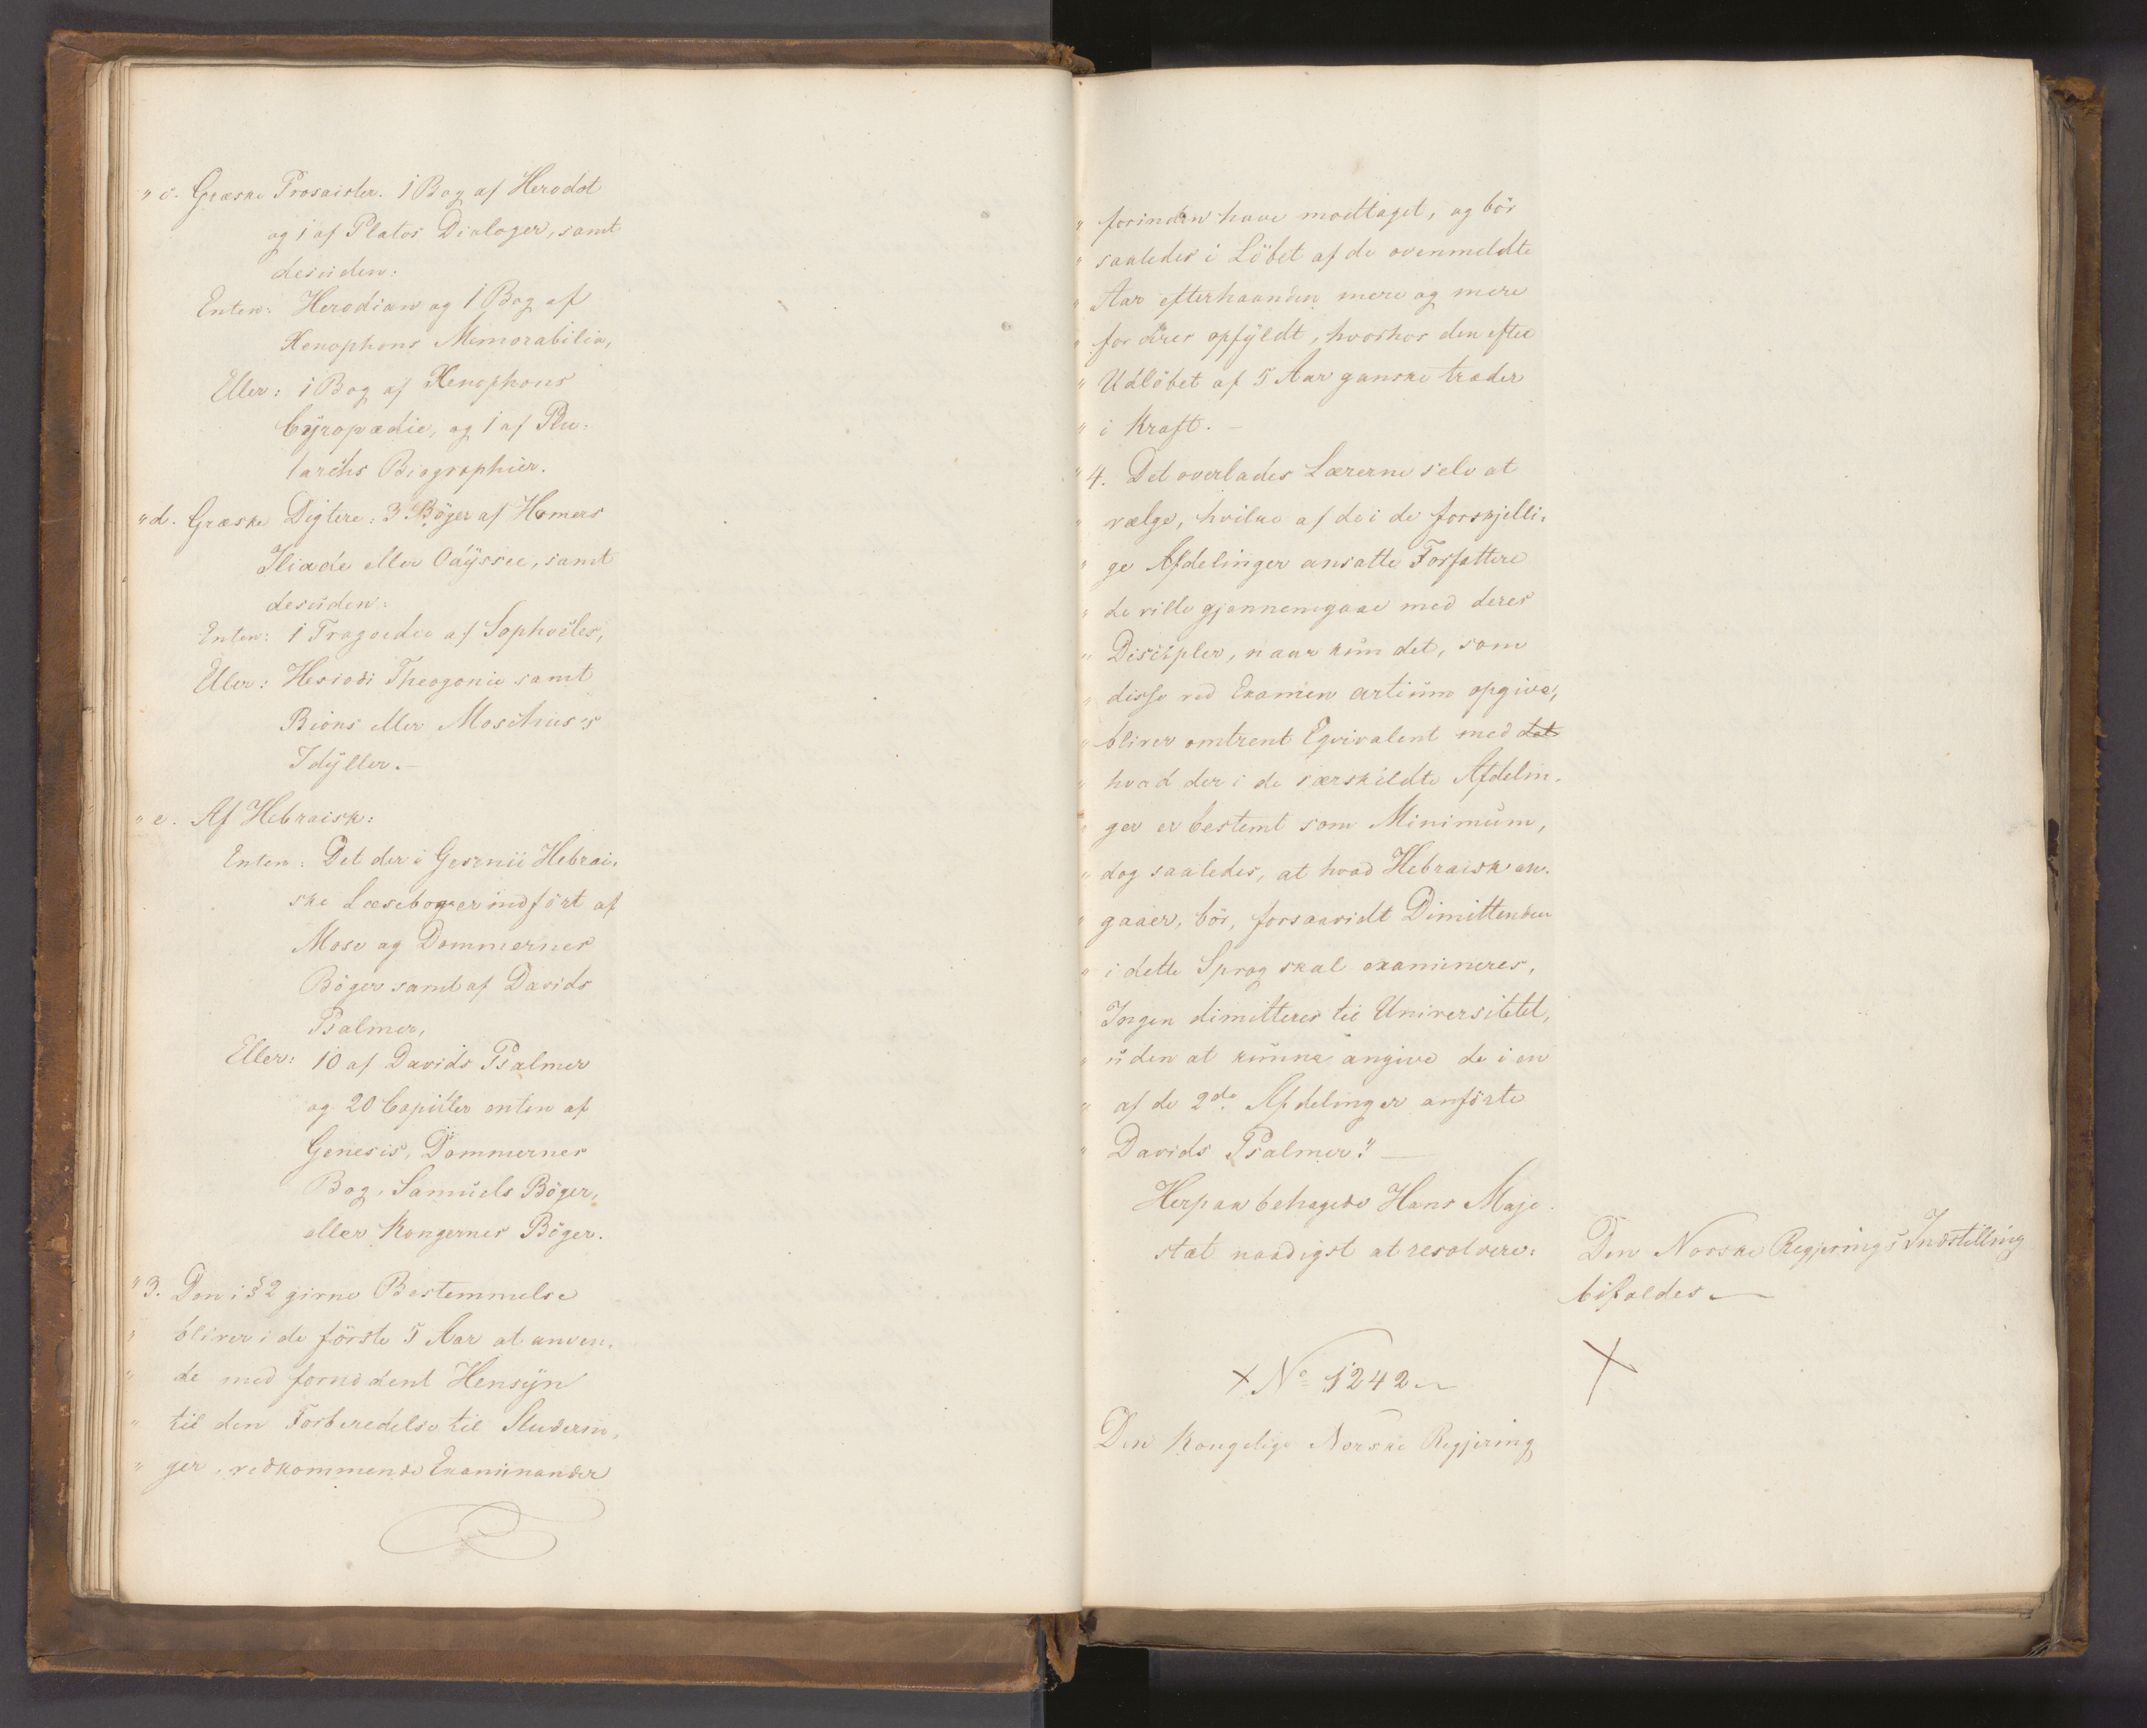 " c. Græske Prosaister. 1 Bog af Herodot
og 1 af Platos Dialoger, samt
desuden:
Enten: Herodian og 1 Bog af
Xenophons Memorabilia,
Eller: 1 Bog af Xenophons
Cyropædie, og 1 af Plu-
tarchs Biographier.
" d. Græske Digtere: 3 Bøger af Homers
Iliade eller Odyssee, samt
desuden:
Enten: 1 Tragoedie af Sophocles,
Eller: Hesiodi Theogonie samt
Bions eller Moschus's
Idyller. —
" e. Af Hebraisk:
Enten: Det der i Gesenii Hebrai-
ske Læsebog er indført af
Mose og Dommernes
Bøger samt af Davids
Psalmer,
Eller: 10 af Davids Psalmer
og 20 Capitler enten af
Genesis, Dommernes
Bog, Samuels Bøger,
eller Kongernes Bøger.
" 3. Den i § 2 givne Bestemmelse
" bliver i de første 5 Aar at anven-
" de med fornødent Hensyn
" til den Forberedelse til Studerin-
" ger, vedkommende Examinander
" forinden have modtaget, og bør
" saaledes i Løbet af de ovenmeldte
" Aar efterhaanden mere og mere
" fordres opfyldt, hvorhos den efter
" Udløbet af 5 Aar ganske træder
" i Kraft. —
" 4. Det overlades Lærerne selv at
" vælge, hvilke af de i de forskjelli-
" ge Afdelinger ansatte Forfattere
" de ville gjennemgaae med deres
" Discipler, naar kun det, som
" disse ved Examen artium opgive,
" bliver omtrent Eqvivalent med det
" hvad der i de særskildte Afdelin-
" ger er bestemt som Minimum,
" dog saaledes, at hvad Hebraisk an-
" gaaer, bør, forsaavidt Dimittenden
" i dette Sprog skal examineres,
Ingen dimitteres til Universitetet,
" uden at kunne angive de i en
" af de 2de Afdelinger anførte
" Davids Psalmer." —
Herpaa behagede Hans Maje-
stæt naadigst at resolvere:
Den Norske Regjerings Indstilling
bifaldes —
+ No 1242 —
Den Kongelige Norske Regjering